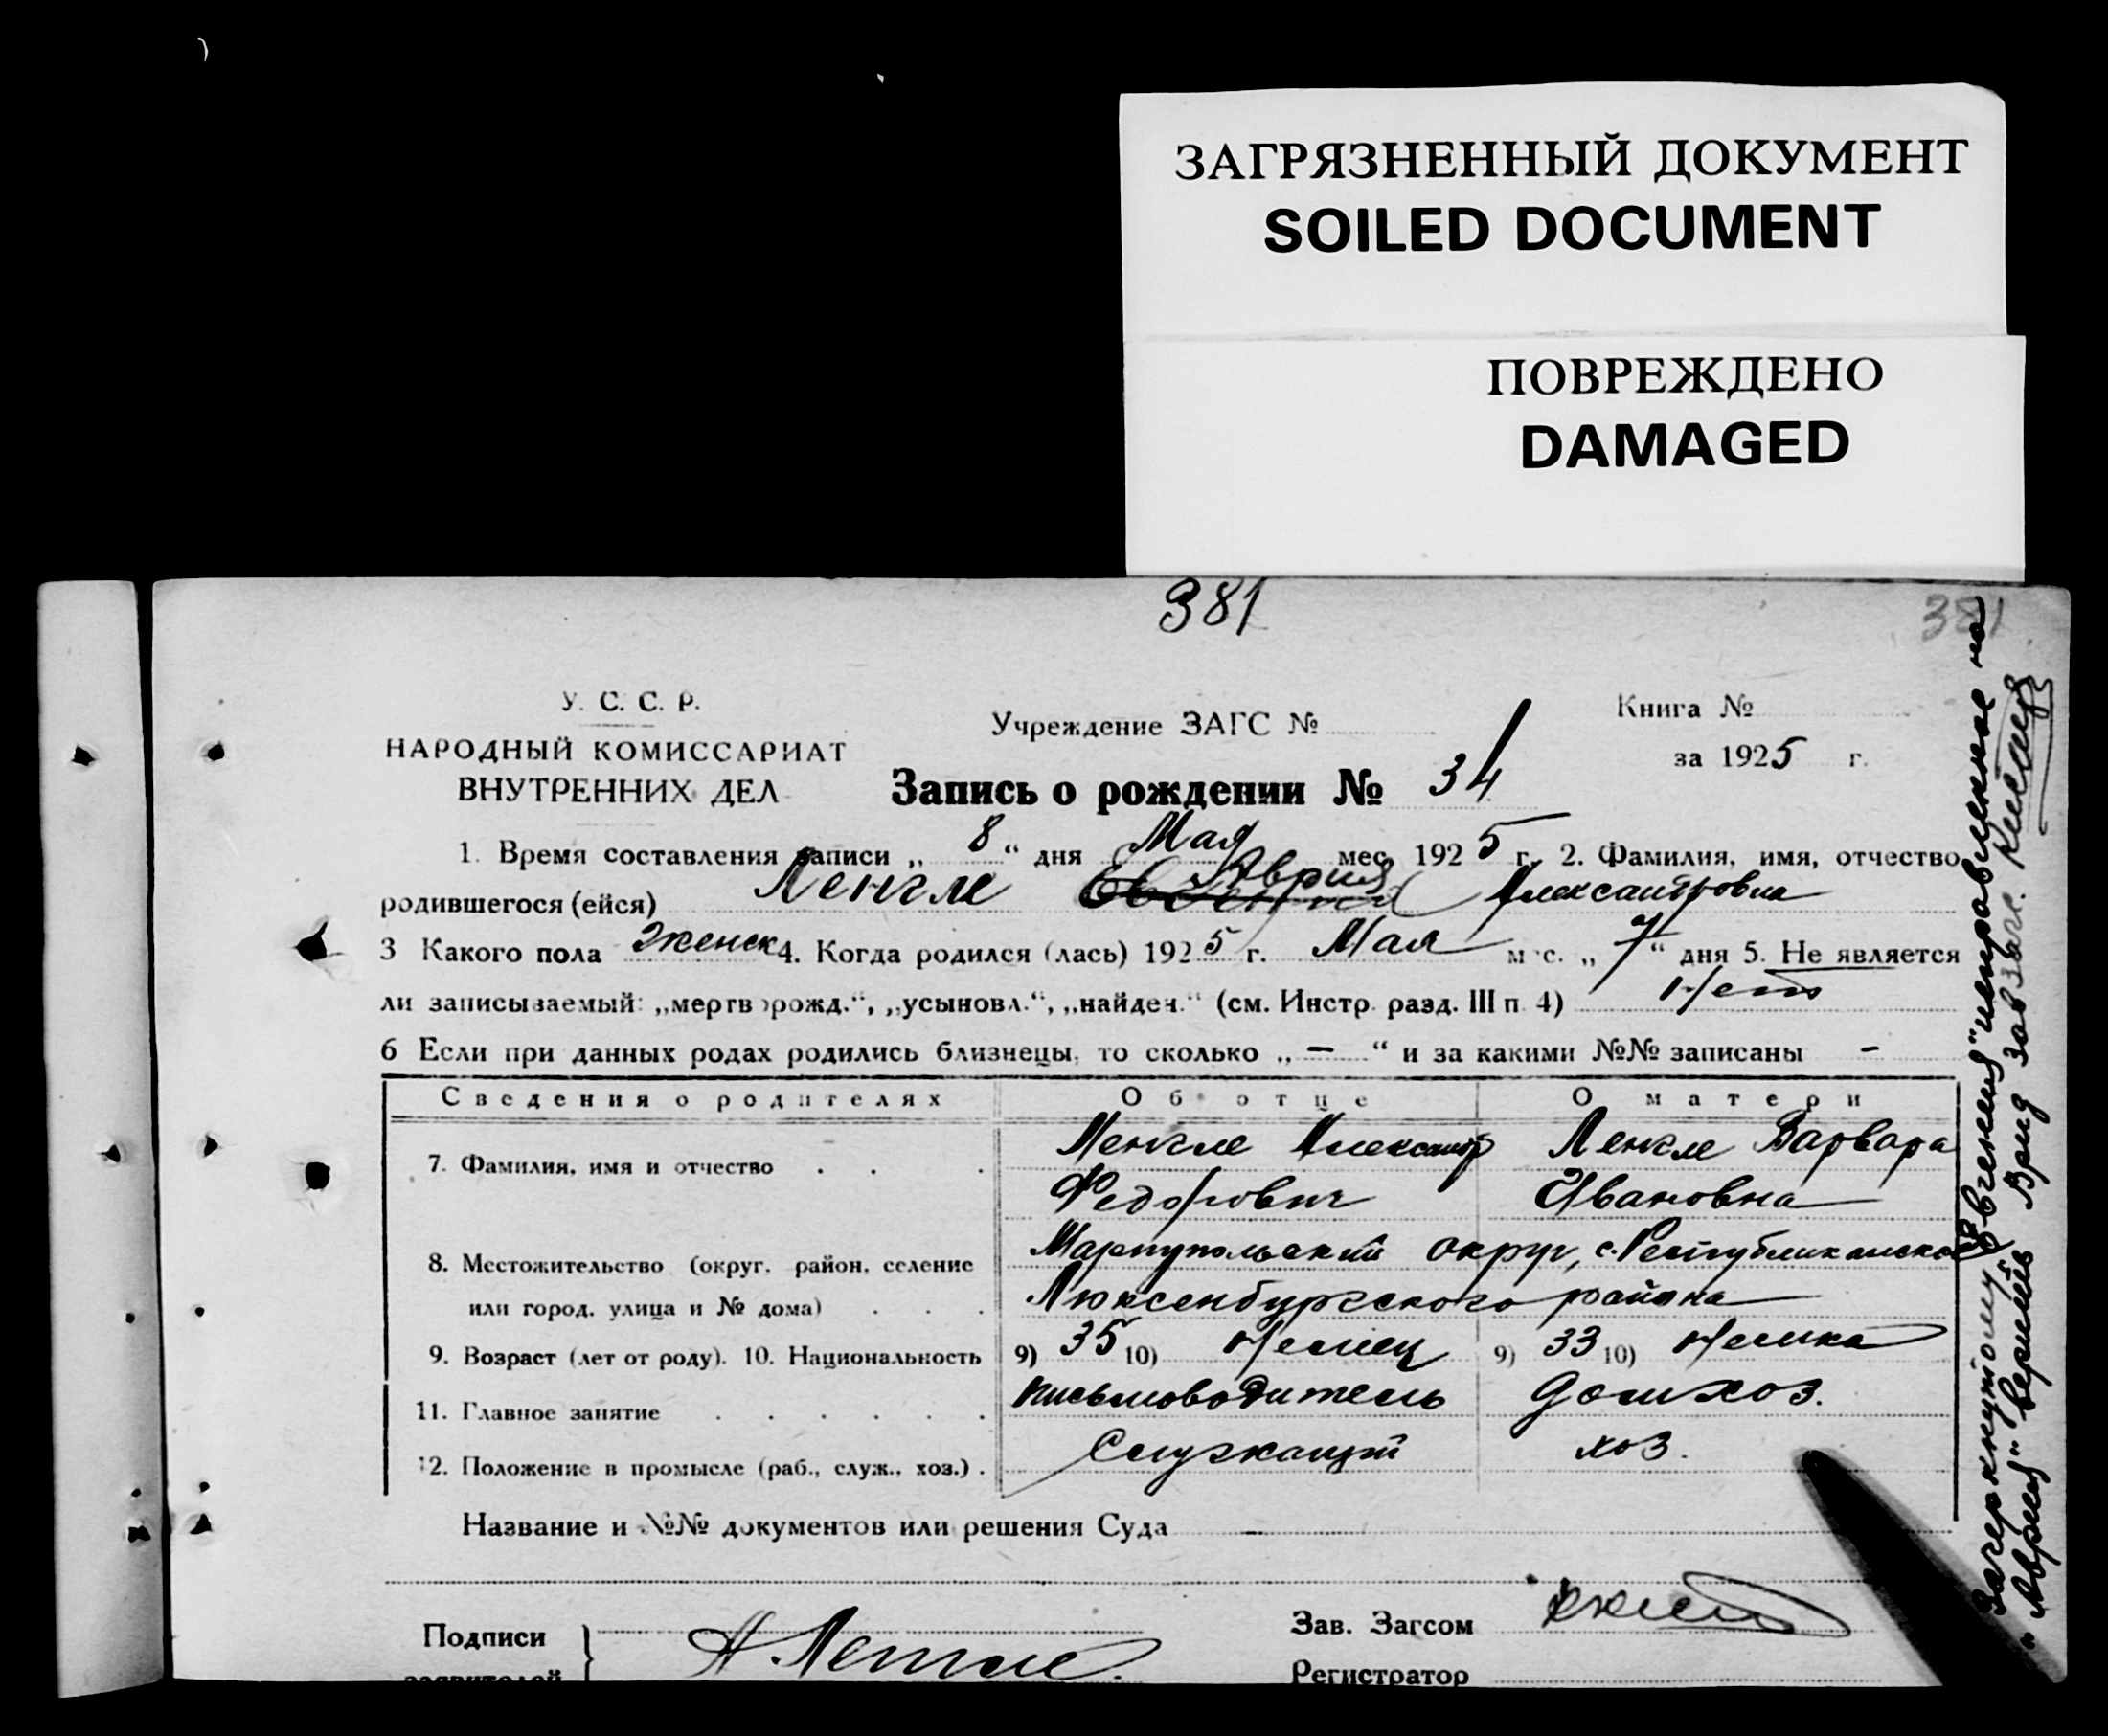 ЗАГРЯЗНЕННЫЙ ДОКУМЕНТ
SOILED DOCUMENT
ПОВРЕЖДЕНО
DAMAGED
381
381
У. С. С. Р.
НАРОДНЫЙ КОМИССАРИАТ
ВНУТРЕННИХ ДЕЛ
Учреждение ЗАГС №
Книга №
за 1925 г.
Запись о рождении № 34
1. Время составления записи „ 8 “ дня Мая мес. 1925 г. 2. Фамилия, имя, отчество
родившегося (ейся) Ленгле Евгения Аврия Александровна
3 Какого пола женск 4. Когда родился (лась) 1925 г. Мая мес. „ 7 “ дня 5. Не является
ли записываемый: „мертворожд.“, „усыновл.“, „найден.“ (см. Инстр. разд. III п. 4) Нет
6 Если при данных родах родились близнецы, то сколько „ — “ и за какими №№ записаны -
Сведения о родителях Об отце О матери
7. Фамилия, имя и отчество . . . Ленгле Александр Ленгле Варвара
Федорович Ивановна
8. Местожительство (округ, район, селение Мариупольский округ, с. Республиканское
или город, улица и № дома) . . . Люксенбургского района
9. Возраст (лет от роду). 10. Национальность 9) 35 10) Немец 9) 33 10) Немка
11. Главное занятие . . . . . . письмоводитель дом хоз.
12. Положение в промысле (раб., служ., хоз.) . Служащий хоз.
Название и №№ документов или решения Суда —
Подписи А. Ленгле Зав. Загсом
заявителей Регистратор
Зачеркнутому "Евгения" исправленное на
"Аврия" верить Врид зав загс.